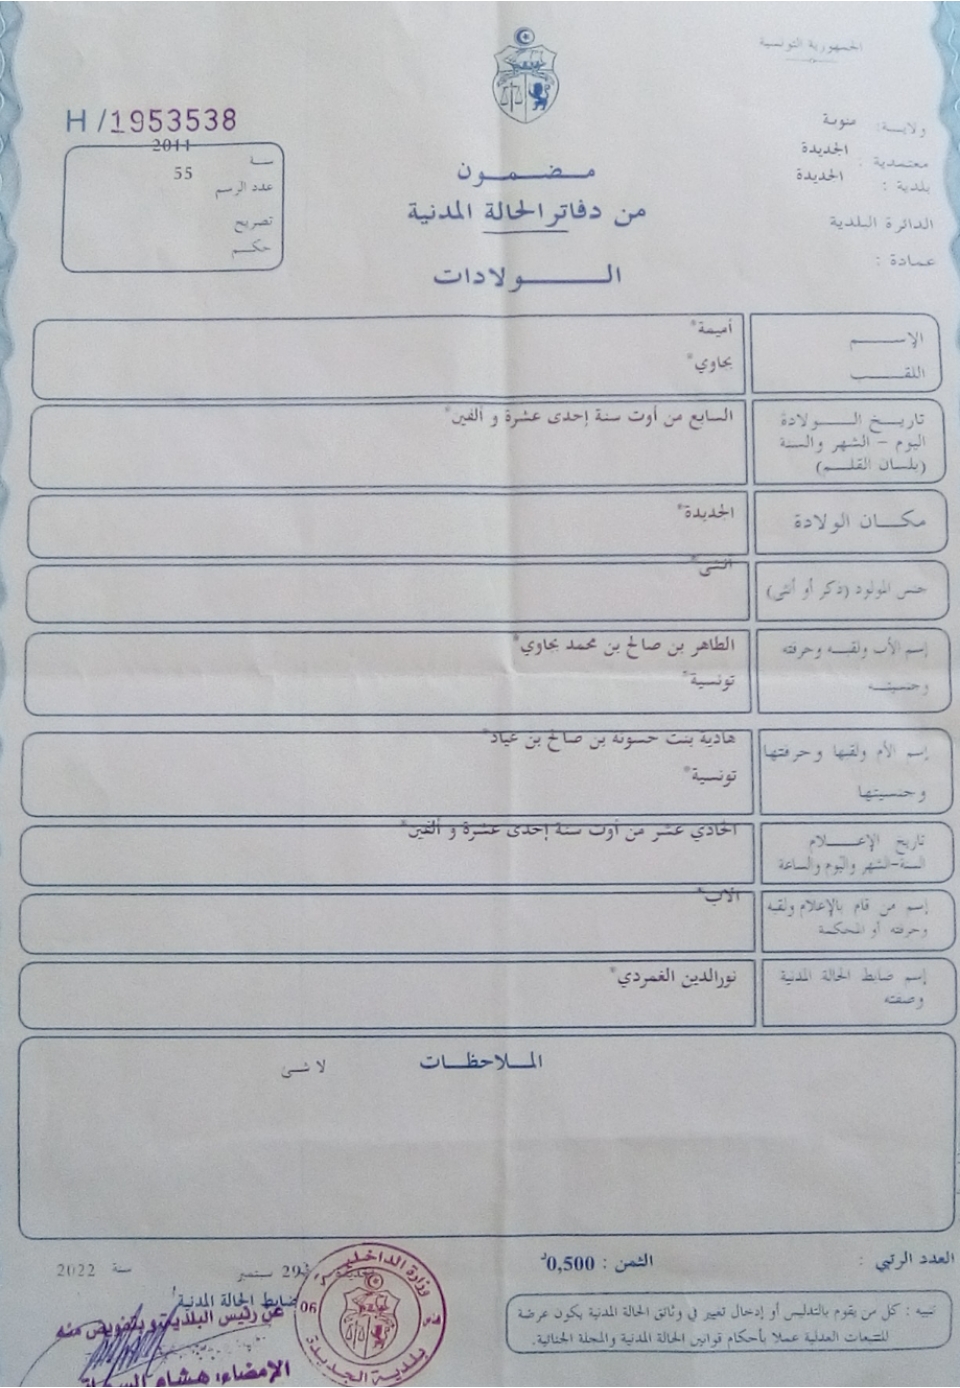 الجمهورية التونسية
H /1953538
ولاية: منوبة
معتمدية : الجديدة
بلدية : الجديدة
الدائرة البلدية
عمادة :
سنة 2011
عدد الرسم 55
تصريح
حكم
مضمون
من دفاتر الحالة المدنية
الولادات
الإسم أميمة*
اللقب بجاوي*
تاريخ الولادة السابع من أوت سنة إحدى عشرة و ألفين*
اليوم - الشهر والسنة
(بلسان القلم)
مكان الولادة الجديدة*
جنس المولود (ذكر أو أنثى) أنثى*
إسم الأب ولقبه وحرفته الطاهر بن صالح بن محمد بجاوي*
وجنسيته تونسية*
إسم الأم ولقبها وحرفتها هادية بنت حسونة بن صالح بن عياد*
وجنسيتها تونسية*
تاريخ الإعلام الحادي عشر من أوت سنة إحدى عشرة و ألفين*
السنة-الشهر واليوم والساعة
إسم من قام بالإعلام ولقبه الاب*
وحرفته أو المحكمة
إسم ضابط الحالة المدنية نورالدين الغمردي*
وصفته
الملاحظات
لا شئ
العدد الرتبي :
الثمن : 0,500د
29 سبتمبر سنة 2022
ضابط الحالة المدنية
عن رئيس البلدية وبتفويض منه
الإمضاء: هشام
وزارة الداخلية
06
بلدية الجديدة
تنبيه : كل من يقوم بالتدليس أو إدخال تغيير في وثائق الحالة المدنية يكون عرضة
للتتبعات العدلية عملا بأحكام قوانين الحالة المدنية والمجلة الجنائية.